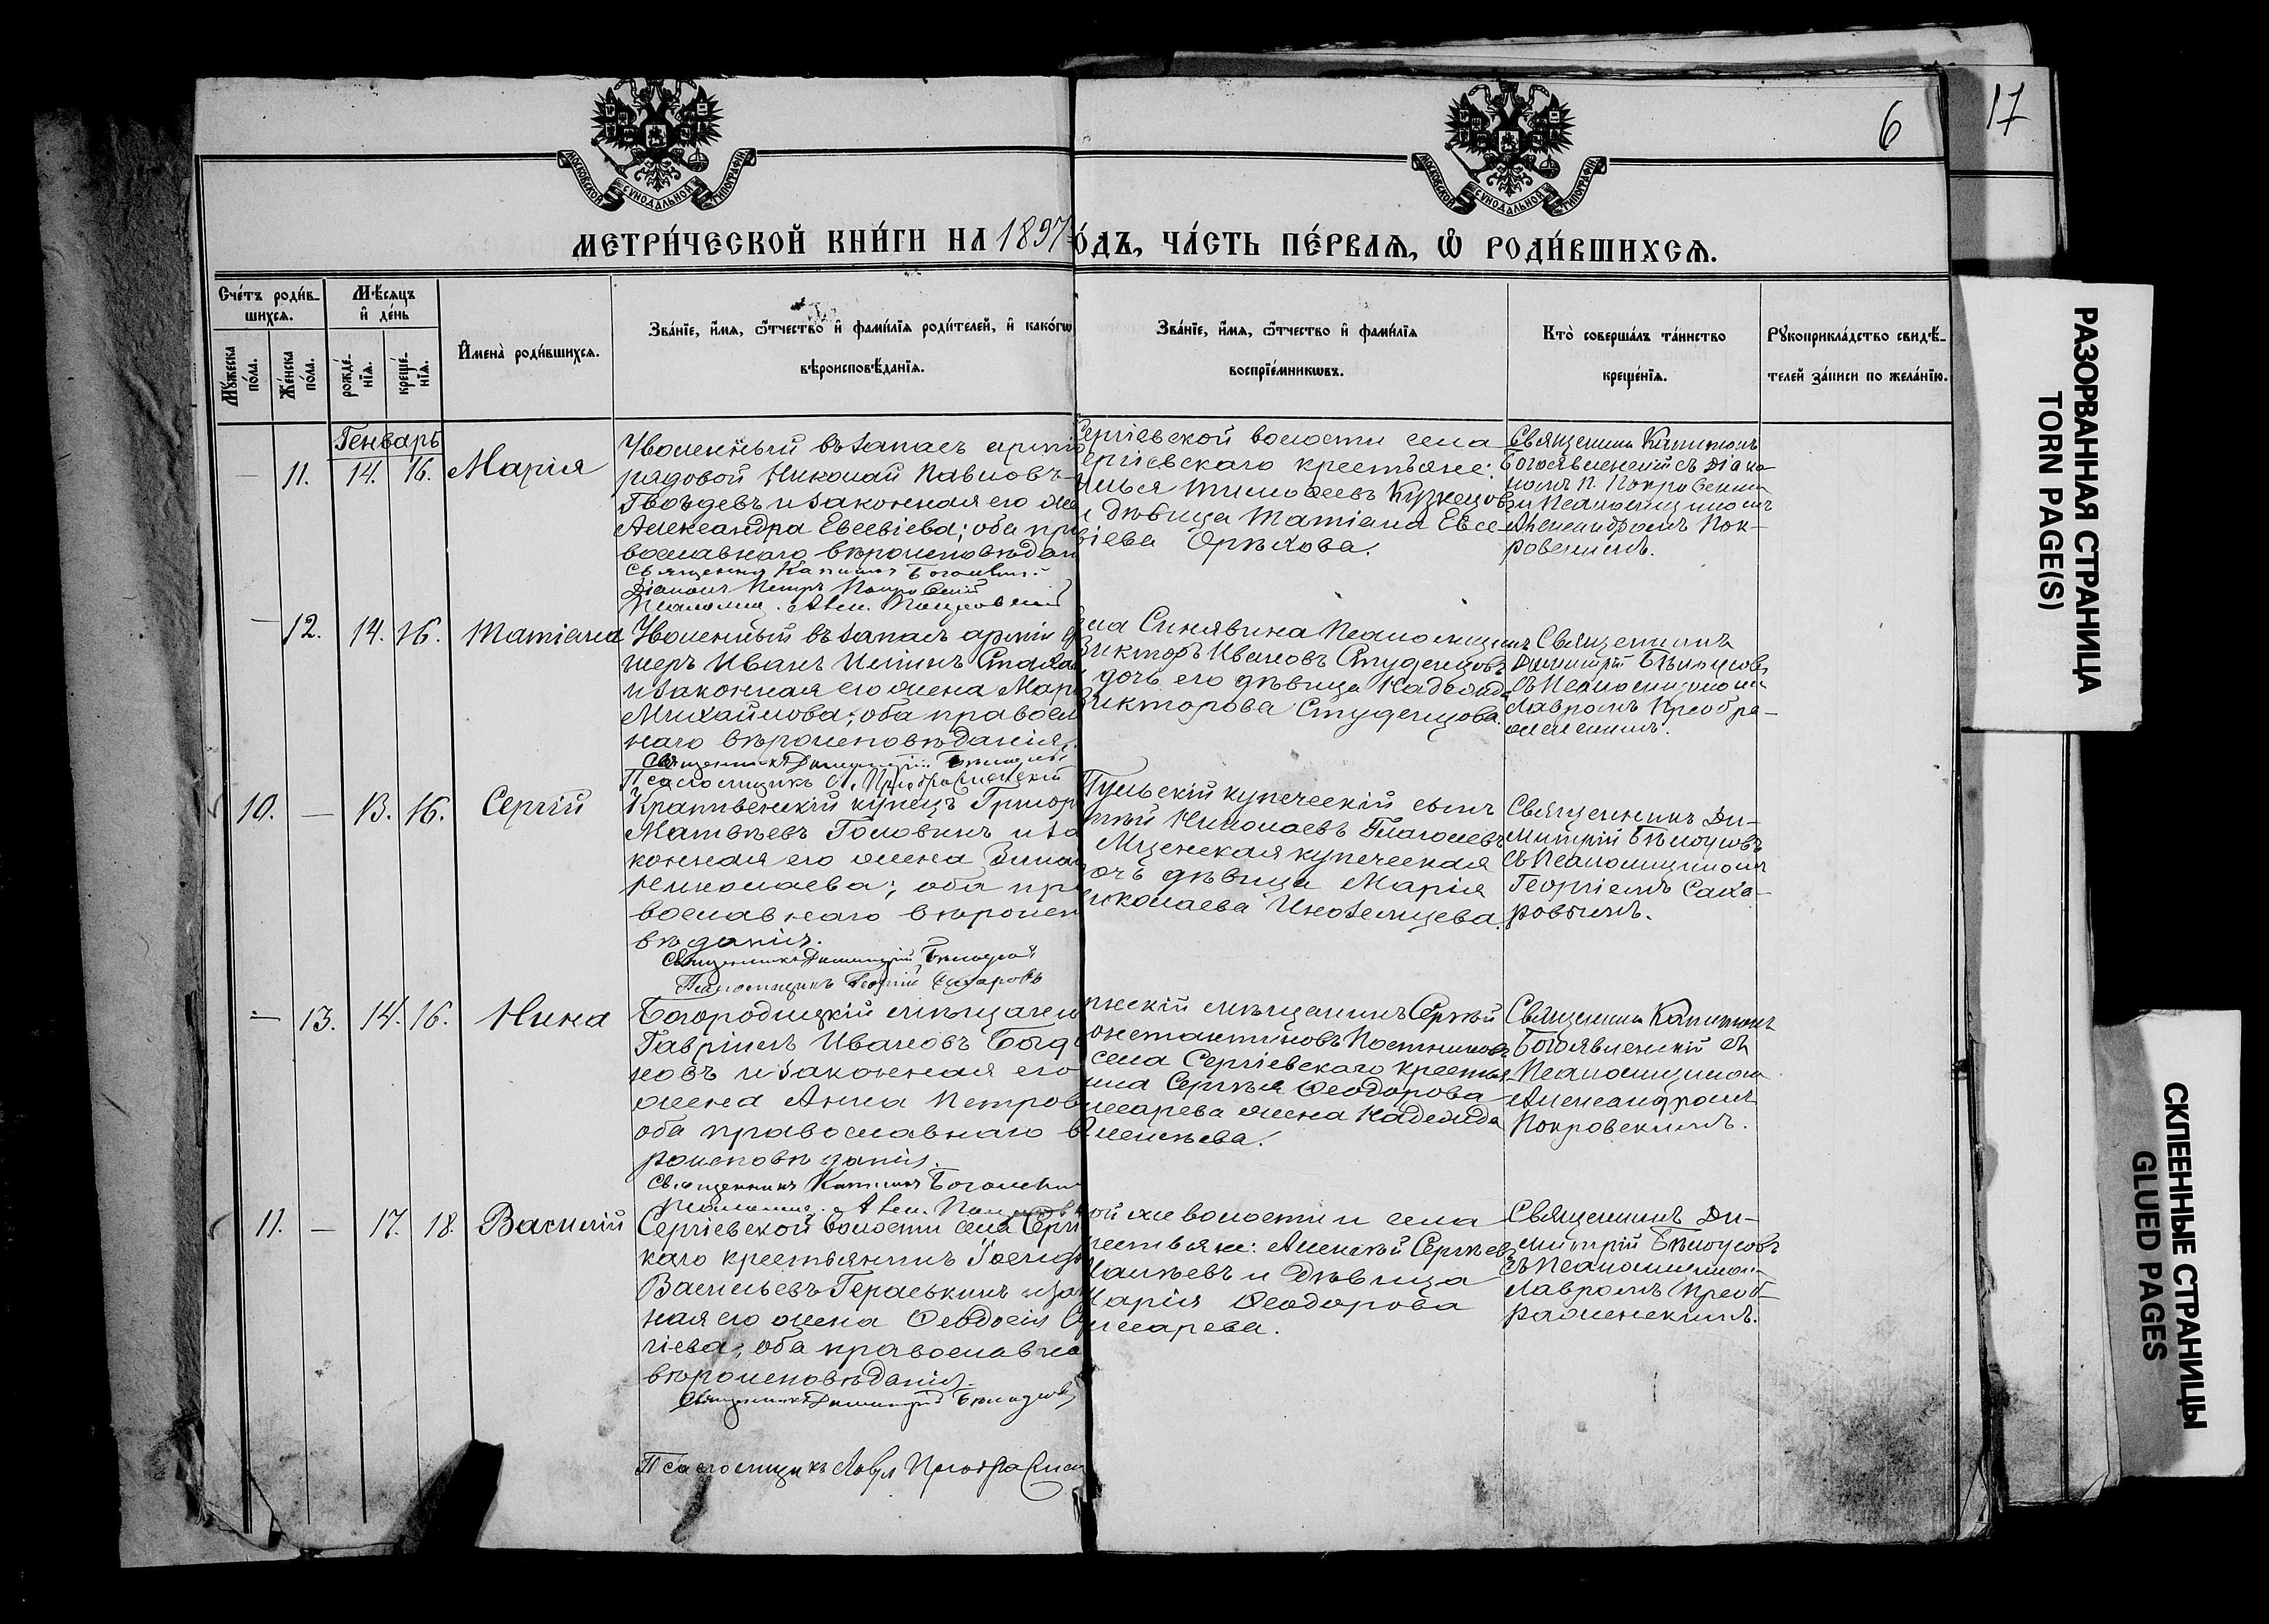 6
17
МОСКОВСКОЙ СѴНОДАЛЬНОЙ ТИПОГРАФІИ
МОСКОВСКОЙ СѴНОДАЛЬНОЙ ТИПОГРАФІИ
МЕТРИ́ЧЕСКОЙ КНИ́ГИ НА 1897 О́ДЪ, ЧА́СТЬ ПЕ́РВАѦ, Ѽ РОДИ́ВШИХСѦ.
Сче́тъ роди́в-
шихсѧ.
Мꙋ́жеска по́ла.
Же́нска по́ла.
Мѣ́сѧцъ и҆ де́нь
рожде́-нїѧ.
креще́-нїѧ.
И҆мена̀ роди́вшихсѧ.
Зва́нїе, и҆́мѧ, ѻ҆́тчество и҆ фами́лїѧ роди́телей, и҆ како́гѡ
вѣроисповѣ́данїѧ.
Зва́нїе, и҆́мѧ, ѻ҆́тчество и҆ фами́лїѧ
воспрїе́мникѡвъ.
Кто̀ соверша́лъ та́инство
креще́нїѧ.
Рꙋкоприкла́дство свидѣ́-
телей за́писи по жела́нїю.
Генварь
— 11. 14. 16. Марія
Уволенный въ запасъ арміи
рядовой Николай Павловъ
Гвоздевъ и законная его же
Александра Евсевіева; оба пра
вославнаго вѣроисповѣдан
Священникъ Капитонъ Богоявл.
Діаконъ Петръ Покровскій
Псаломщ. Алек. Покровскій
Сергіевской волости села
ергіевскаго крестьяне:
Илья Тимофеевъ Кузнецовъ
и дѣвица Татіана Евсе-
віева Орѣхова.
Священникъ Капитонъ
Богоявленскій съ Діако-
номъ П. Покровскимъ
и Псаломщикомъ
Александромъ Пок-
ровскимъ.
— 12. 14. 16. Татіана
Уволенный въ запасъ арміи
Иванъ Ильинъ
и законная его жена Мар
Михайлова; оба правосл
наго вѣроисповѣданія.
Священникъ Димитрій Бѣлоусовъ
Псаломщикъ Л. Преображенскій
ела Синявина Псаломщикъ
Викторъ Ивановъ Студенцовъ
дочь его дѣвица Надежда
Викторова Студенцова.
Священникъ
Димитрій Бѣлоусовъ
съ Псаломщикомъ
Лавромъ Преобра-
женскимъ.
10. — 13. 16. Сергій
Крапивенскій купецъ Григор
Матвѣевъ Головинъ и за
конная его жена Зина
Николаева; оба пра
вославнаго вѣроиспо
вѣданія.
Священникъ Димитрій Бѣлоусовъ
Псаломщикъ Георгій Сахаровъ
Тульскій купеческій сынъ
Николаевъ Глаголевъ
Мценская купеческая
очь дѣвица Марія
иколаева Иноземцева.
Священникъ Ди-
митрій Бѣлоусовъ
съ Псаломщикомъ
Георгіемъ Саха-
ровымъ.
— 13. 14. 16. Нина
Богородицкій мѣщани
Гавріилъ Ивановъ Богд
новъ и законная его
жена Анна Петров
оба православнаго в
роисповѣданія.
Священникъ Капитонъ Богоявлен
Псаломщ. Алек. Покровск
мѣщанинъ Сергѣй
онстантиновъ Постниковъ
села Сергіевскаго крестья-
нина Сергѣя Ѳеодорова
жена Надежда
Алексѣева.
Священникъ Капитонъ
Богоявленскій съ
Псаломщикомъ
Александромъ
Покровскимъ.
11. — 17. 18. Василій
Сергіевской волости села Сергі
каго крестьянинъ
Васильевъ Гераськинъ и зак
ная его жена Ѳеодосія Се
гіева; оба православна
вѣроисповѣданія.
Священникъ Димитрій Бѣлоусовъ
Псаломщикъ Лавръ Преображен
ой же волости и села
рестьяне: Алексѣй Сергѣевъ
и дѣвица
Марія Ѳеодорова
Священникъ Ди-
митрій Бѣлоусовъ
съ Псаломщикомъ
Лавромъ Преоб-
раженскимъ.
РАЗОРВАННАЯ СТРАНИЦА
TORN PAGE(S)
СКЛЕЕННЫЕ СТРАНИЦЫ
GLUED PAGES